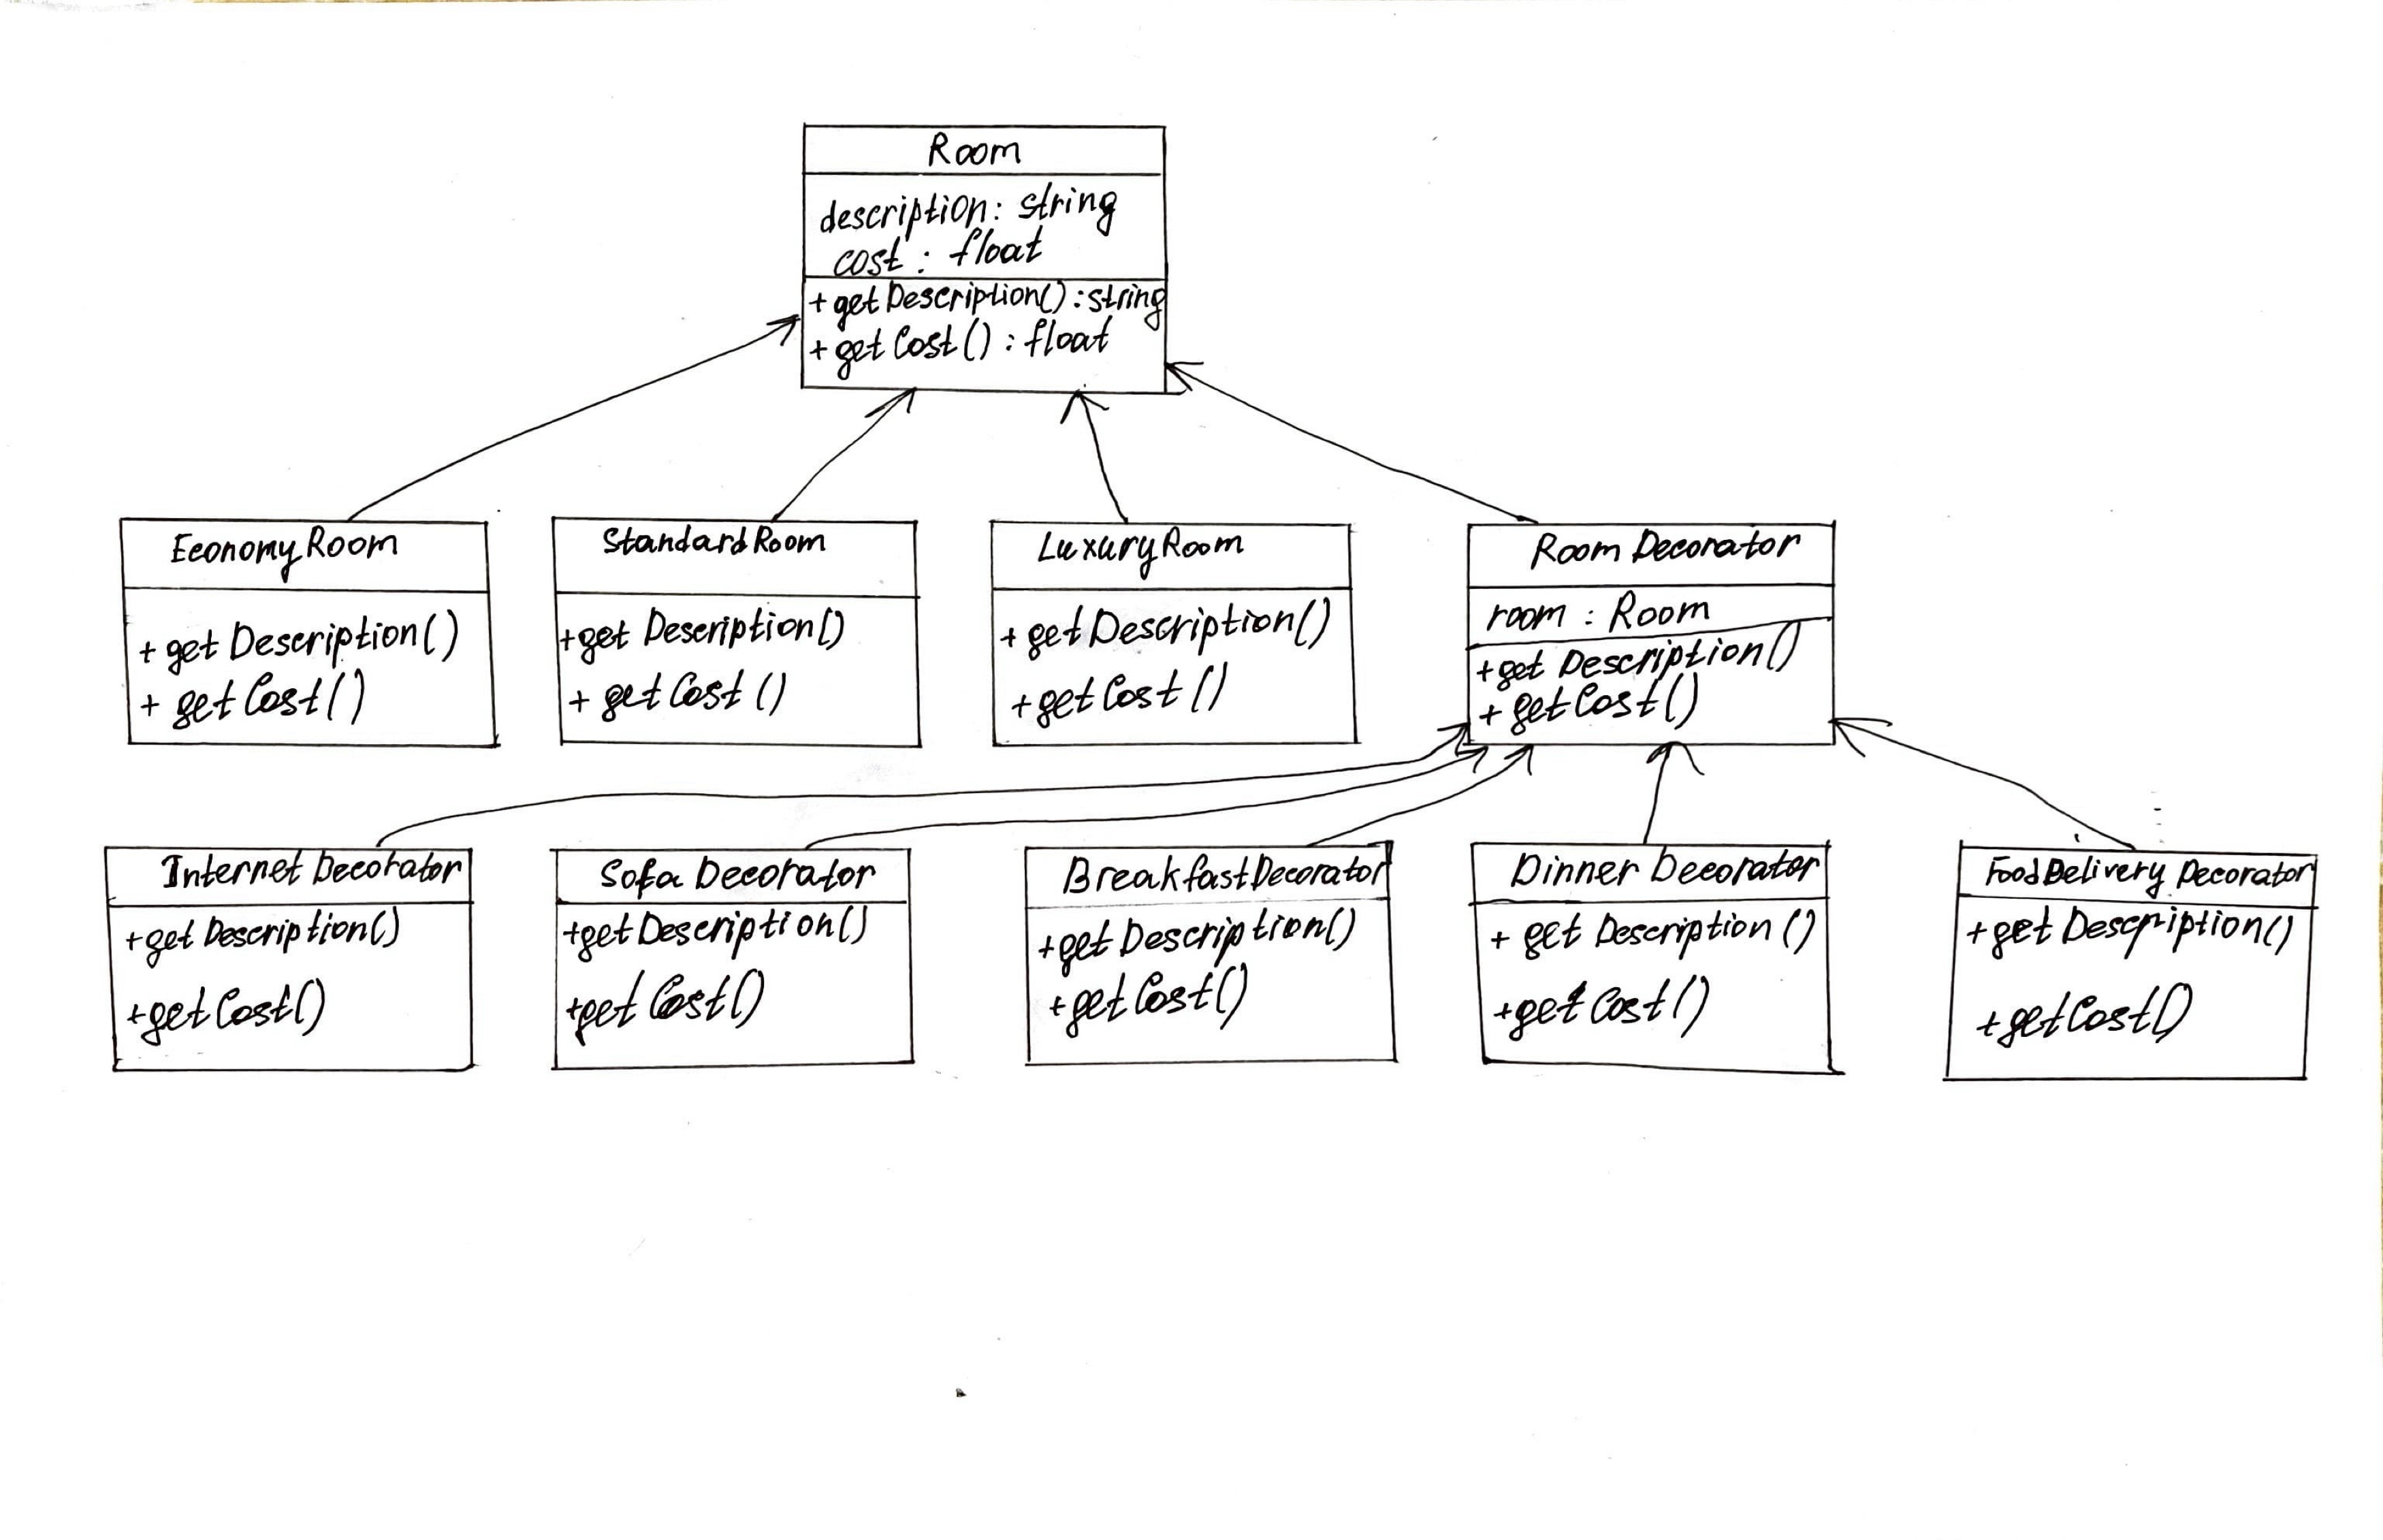 Room
description: string
cost : float
+ getDescription() : string
+ getCost() : float
EconomyRoom
+ getDescription()
+ getCost()
StandardRoom
+getDescription()
+ getCost()
LuxuryRoom
+ getDescription()
+getCost()
RoomDecorator
room : Room
+get Description()
+ getCost()
Internet Decorator
+get Description()
+getCost()
Sofa Decorator
+getDescription()
+get Cost()
BreakfastDecorator
+get Description()
+getCost()
Dinner Decorator
+ get Description()
+get Cost()
FoodDelivery Decorator
+get Description()
+getCost()